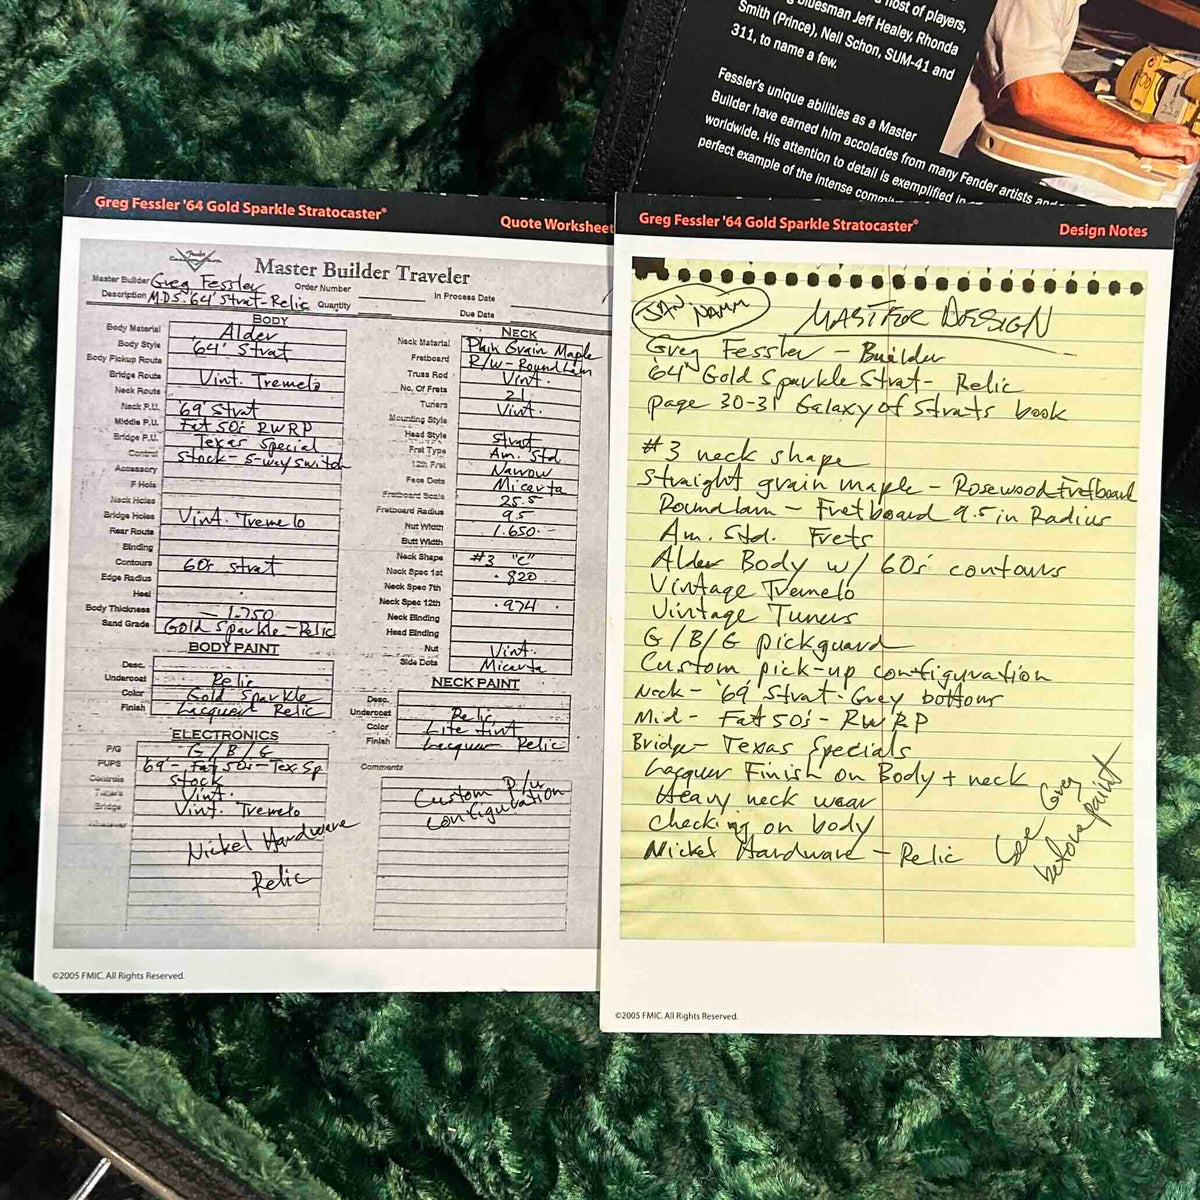 host of players,
bluesman Jeff Healey, Rhonda
Smith (Prince), Neil Schon, SUM-41 and
311, to name a few.
Fessler's unique abilities as a Master
Builder have earned him accolades from many Fender artists and
worldwide. His attention to detail is exemplified in
perfect example of the intense
Greg Fessler '64 Gold Sparkle Stratocaster®
Quote Worksheet
Fender
Master Builder Traveler
Master Builder Greg Fessler
Order Number
In Process Date
Description M.D.S. '64' Strat-Relic
Quantity
Due Date
BODY
Body Material Alder
Body Style '64' Strat
Body Pickup Route
Bridge Route Vint. Tremelo
Neck Route
Neck P.U. '69' Strat
Middle P.U. Fat 50's RWRP
Bridge P.U. Texas Special
Control Stock - 5-way switch
Accessory
F Hole
Neck Holes
Bridge Holes Vint. Tremelo
Rear Route
Binding
Contours 60's Strat
Edge Radius
Heel
Body Thickness 1.750
Sand Grade Gold Sparkle-Relic
BODY PAINT
Desc.
Undercoat Relic
Color Gold Sparkle
Finish Lacquer Relic
ELECTRONICS
P/G G/B/G
PUPS '69'- Fat 50's-Tex Sp
Controls Stock
Tuners Vint.
Bridge Vint. Tremelo
Nickel Hardware
Relic
NECK
Neck Material Plain Grain Maple
Fretboard R/W-Roundlam
Truss Rod Vint.
No. Of Frets 21
Tuners Vint.
Mounting Style
Head Style Strat
Fret Type Am. Std
12th Fret Narrow
Face Dots Micarta
Fretboard Scale 25.5
Fretboard Radius 9.5
Nut Width 1.650
Butt Width
Neck Shape #3 "C"
Neck Spec 1st .820
Neck Spec 7th
Neck Spec 12th .974
Neck Binding
Head Binding
Nut Vint.
Side Dots Micarta
NECK PAINT
Desc.
Undercoat Relic
Color Lite tint
Finish Lacquer Relic
Comments
Custom P/u
configuration
©2005 FMIC. All Rights Reserved.
Greg Fessler '64 Gold Sparkle Stratocaster®
Design Notes
JAN NAMM
MASTER DESIGN
Greg Fessler - Builder
'64' Gold Sparkle Strat- Relic
page 30-31 Galaxy of Strats book
#3 neck shape
Straight grain maple - Rosewood Fretboard
Roundlam - Fretboard 9.5 in Radius
Am. Std. Frets
Alder Body w/ 60's contours
Vintage Tremelo
Vintage Tuners
G/B/G pickguard
Custom pick-up configuration
Neck - '69' Strat. Grey bottoms
Mid - Fat 50's - RWRP
Bridge - Texas Specials
Lacquer Finish on Body + neck
Heavy neck wear
checking on body
Nickel Hardware - Relic
See Greg
before paint
©2005 FMIC. All Rights Reserved.